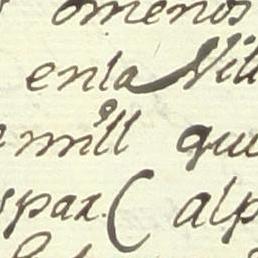 omenos
enla Vill
mill que
spax. ( alp